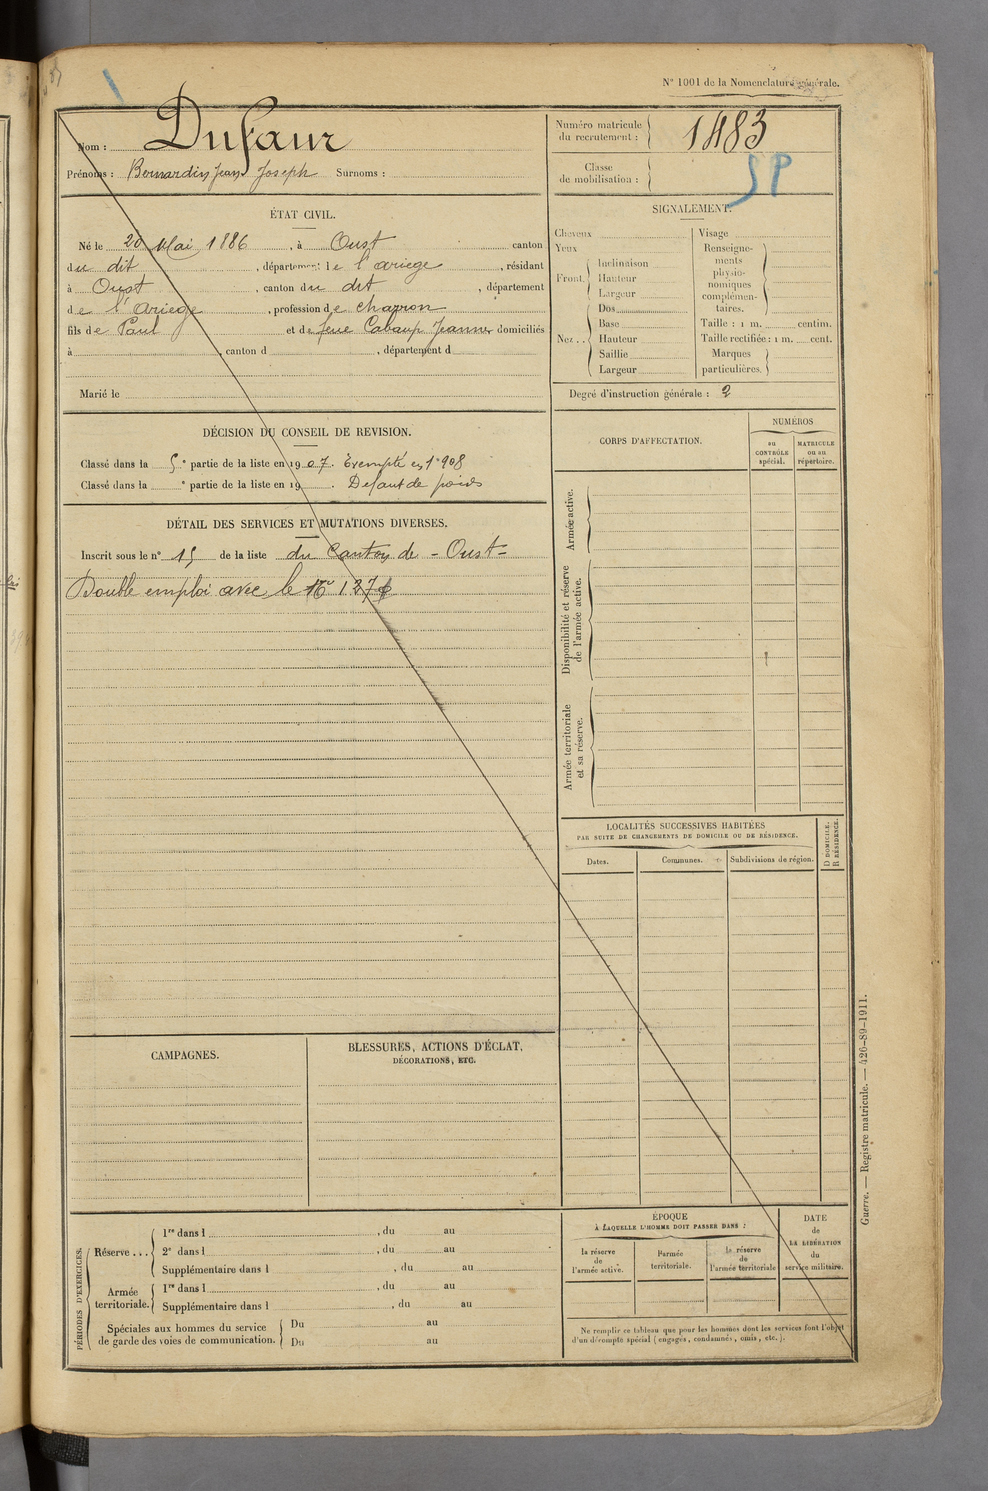 N° 1001 de la Nomenclature générale.
Nom : Dufaur
Prénoms : Bernardin Jean Joseph Surnoms :
Numéro matricule du recrutement : 1483
Classe de mobilisation :
SP
ÉTAT CIVIL.
Né le 20 Mai 1886, à Oust canton
du dit, département de l'ariege, résidant
à Oust, canton du dit, département
de l'Ariege, profession de charron
fils de Paul et de feue Cabaup Jeanne domiciliés
à , canton d , département d
Marié le
SIGNALEMENT.
Cheveux
Yeux
Front. Inclinaison
Hauteur
Largeur
Nez.. Dos
Base
Hauteur
Saillie
Largeur
Visage
Renseignements physionomiques complémentaires.
Taille : 1 m. centim.
Taille rectifiée : 1 m. cent.
Marques particulières.
Degré d'instruction générale : 2
DÉCISION DU CONSEIL DE REVISION.
Classé dans la 5e partie de la liste en 1907. Exempté en 1908
Classé dans la e partie de la liste en 19 . Defaut de poids
DÉTAIL DES SERVICES ET MUTATIONS DIVERSES.
Inscrit sous le n° 15 de la liste du Canton de - Oust -
Double emploi avec le No
CORPS D'AFFECTATION.
NUMÉROS
au CONTRÔLE spécial.
MATRICULE ou au répertoire.
Armée active.
Disponibilité et réserve de l'armée active.
Armée territoriale et sa réserve.
LOCALITÉS SUCCESSIVES HABITÉES
PAR SUITE DE CHANGEMENTS DE DOMICILE OU DE RÉSIDENCE.
Dates.
Communes.
Subdivisions de région.
D DOMICILE.
R RÉSIDENCE.
CAMPAGNES.
BLESSURES, ACTIONS D'ÉCLAT,
DÉCORATIONS, ETC.
PÉRIODES D'EXERCICES.
Réserve ... 1re dans l , du au
2e dans l , du au
Supplémentaire dans l , du au
Armée territoriale. 1re dans l , du au
Supplémentaire dans l , du au
Spéciales aux hommes du service Du au
de garde des voies de communication. Du au
ÉPOQUE
À LAQUELLE L'HOMME DOIT PASSER DANS :
la réserve de l'armée active.
l'armée territoriale.
la réserve de l'armée territoriale
DATE
de
LA LIBÉRATION
du
service militaire.
Ne remplir ce tableau que pour les hommes dont les services font l'objet
d'un décompte spécial (engagés, condamnés, omis, etc.).
Guerre. — Registre matricule. — 426-89-1911.